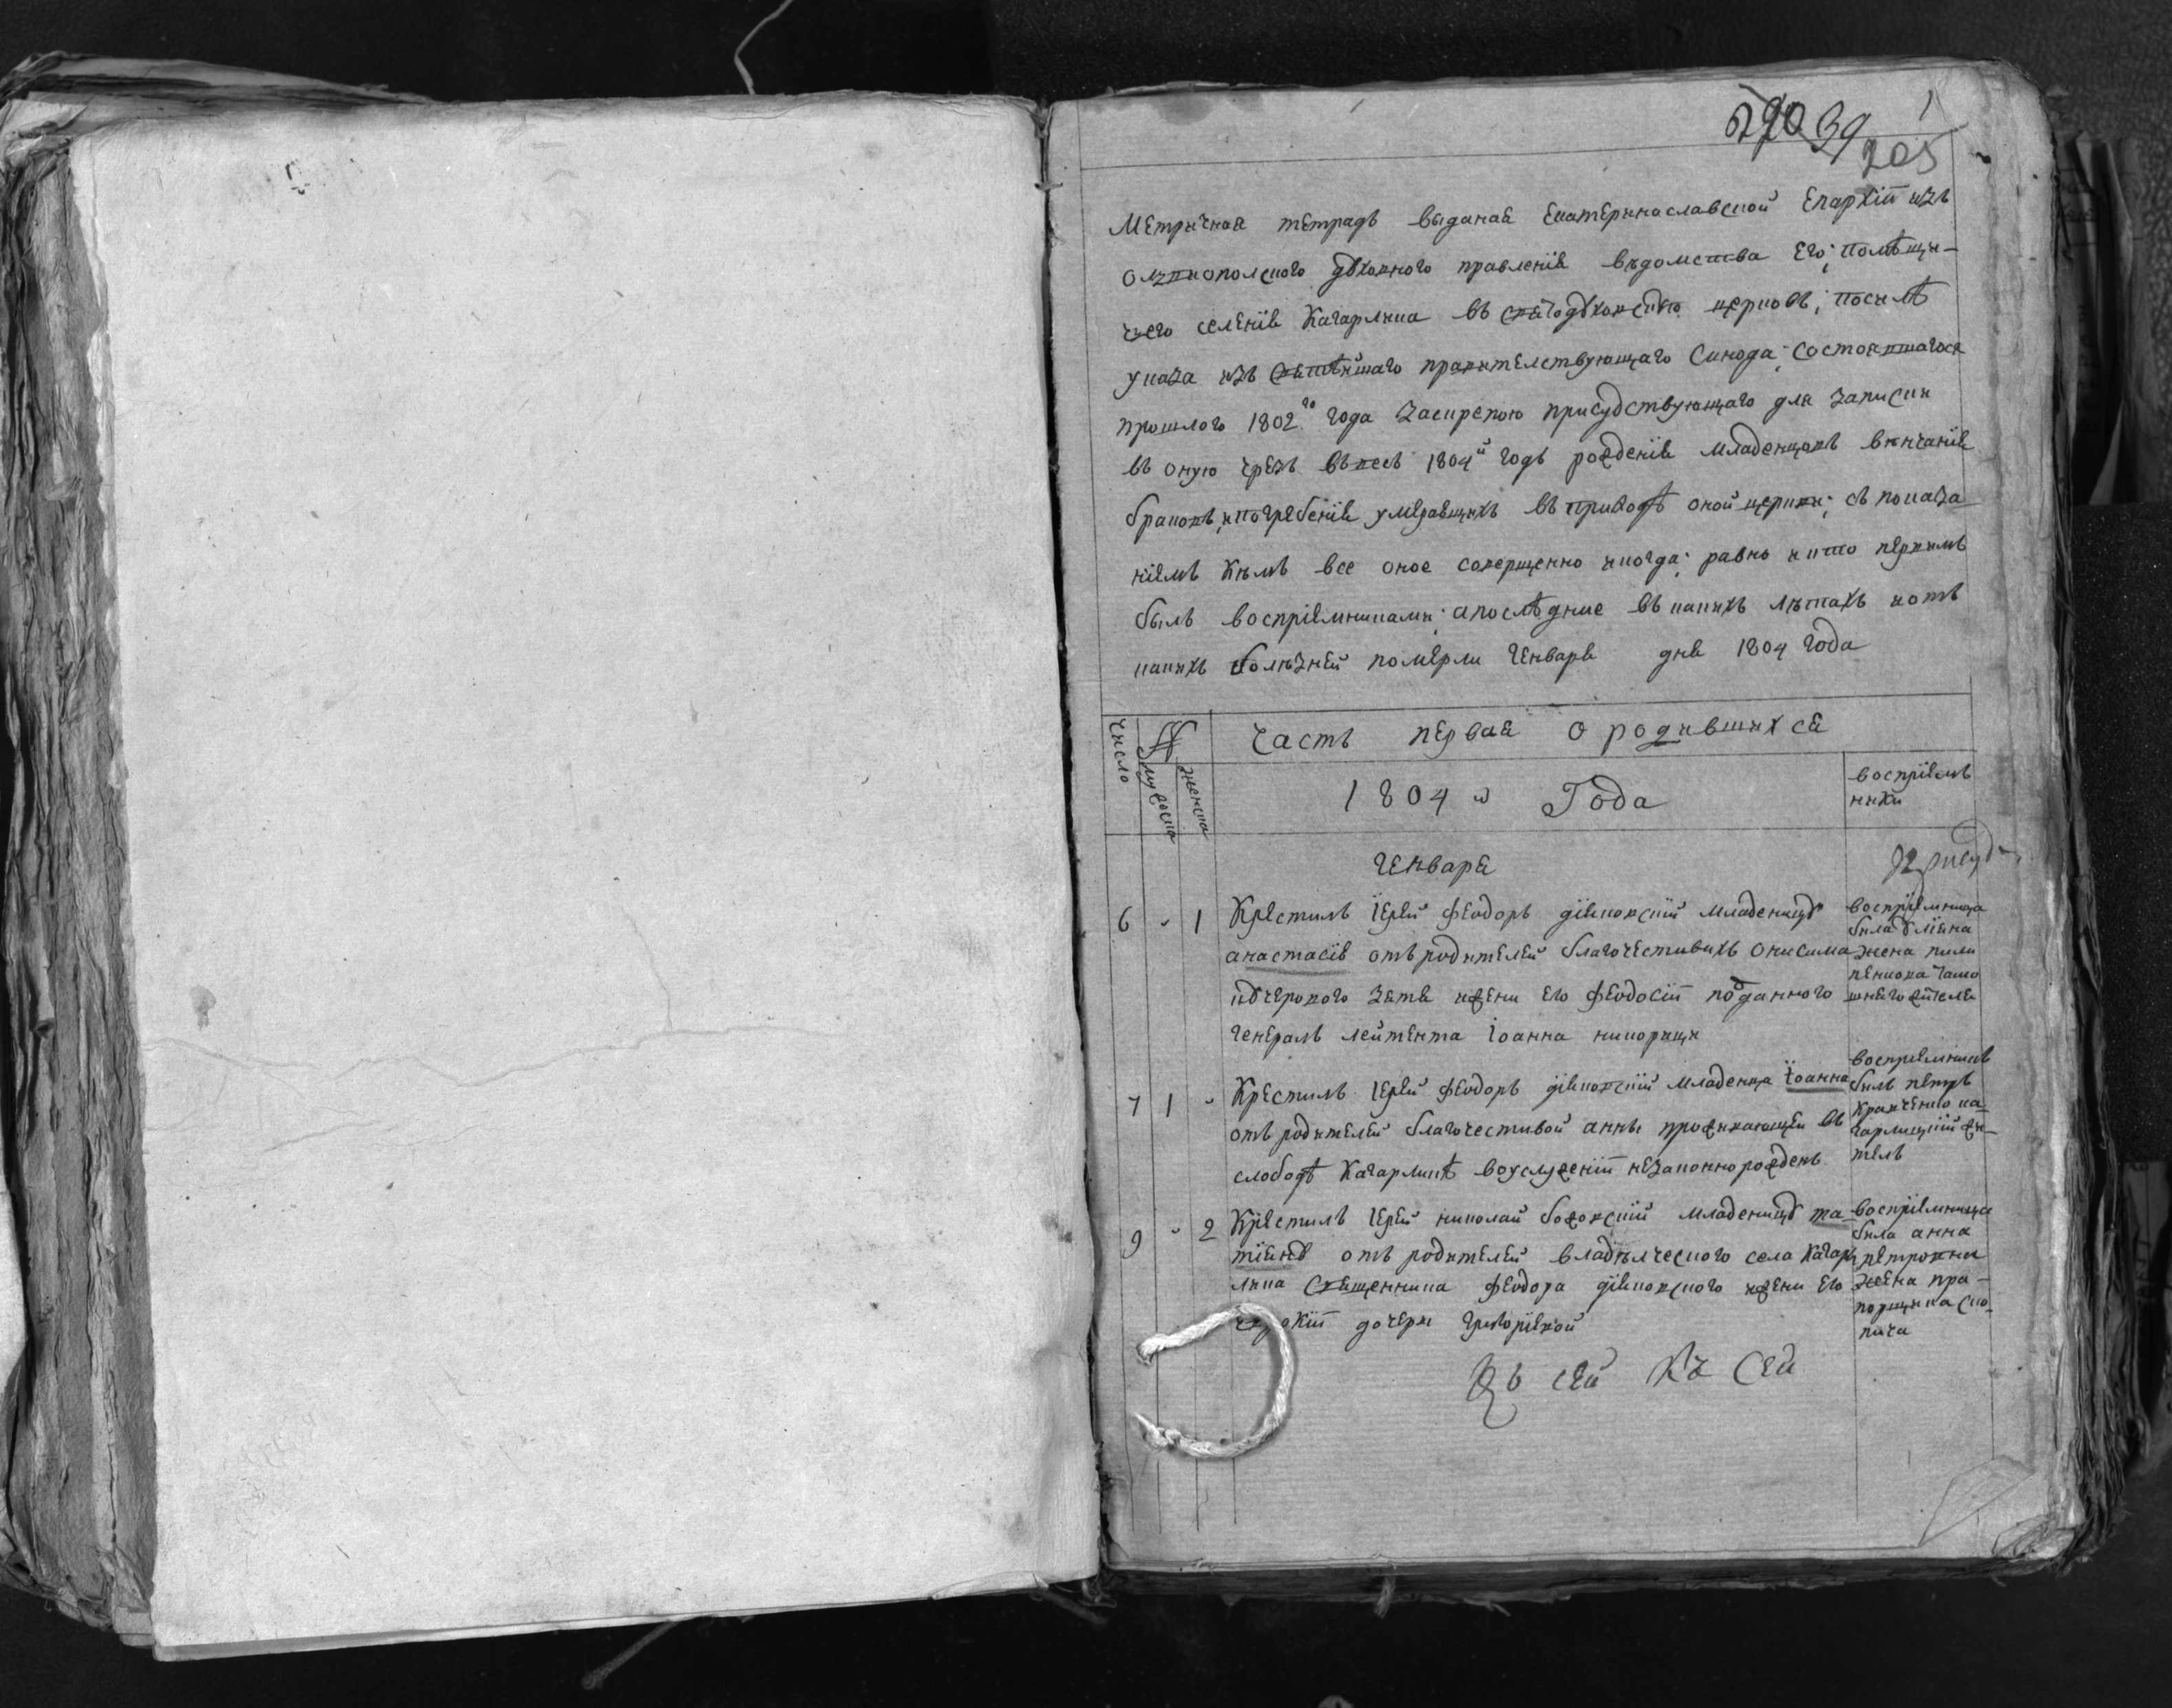 39
1
205
Метричная тетрадь выданая Екатеринославской Епархіи изъ
Олвиополского духовного правленія ведомства его; помѣщи-
чего селенія Кагарлика въ святодуховскую церковь; посилѣ
указа изъ святѣйшаго правителствующаго Синода; состоявшагося
прошлого 1802го года заскрепою присудствующаго для записки
въ оную чрезъ весь 1804й годъ рожденія младенцовъ вѣнчанія
браковъ, ипогребенія умеравщихъ въ приходѣ оной церкви; съ показа
ніемъ кѣмъ все оное соверщенно икогда; равно икто первимъ
былъ воспріемниками; апослѣдние въ какихъ лѣтахъ иотъ
какихъ болѣзней померли Генваря дня 1804 года
число
мужеска
женска
Часть первая о родившихся
1804 Года
воспріем
ники
Генваря
Присуд
6 - 1 Крестилъ Іерей Феодоръ діяковскій младеницу
анастасію отъ родителей благочестивихъ онисима
кучерового зятя ижени его феодосіи подданного
генералъ лейтента іоанна никорици
воспріемница
била
жена пили
пенкова тамо
шнего жителя
7 1 - Крестилъ Іерей Феодоръ діяковскій младенца іоанна
отъ родителей благочестивой анны проживающей въ
слободѣ Кагарликѣ воуслуженіи незаконнорожденъ
воспріемникъ
билъ петръ
кравченко ка-
гарлицкій жи-
тель
9 - 2 Крестилъ Іерей николай боровскій младеницу та-
тіяну отъ родителей владѣлческого села Кагар
лика Священника Феодора діяковского ижени его
дочери григоріевой
воспріемница
била анна
петровна
жена пра-
порщика ско-
пича
Къ сей Къ сей